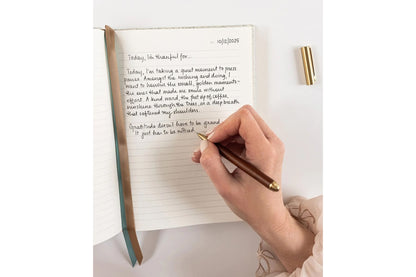 10/12/2025
Today, I'm thankful for...
Today, I'm taking a quiet moment to press
pause. Amongst the rushing and doing, I
want to honour the small, golden moments-
the ones that made me smile without
effort. A kind word, the first sip of coffee,
sunshine through the trees, or a deep breath
that softened my shoulders.
Gratitude doesn't have to be grand
it just has to be noticed.